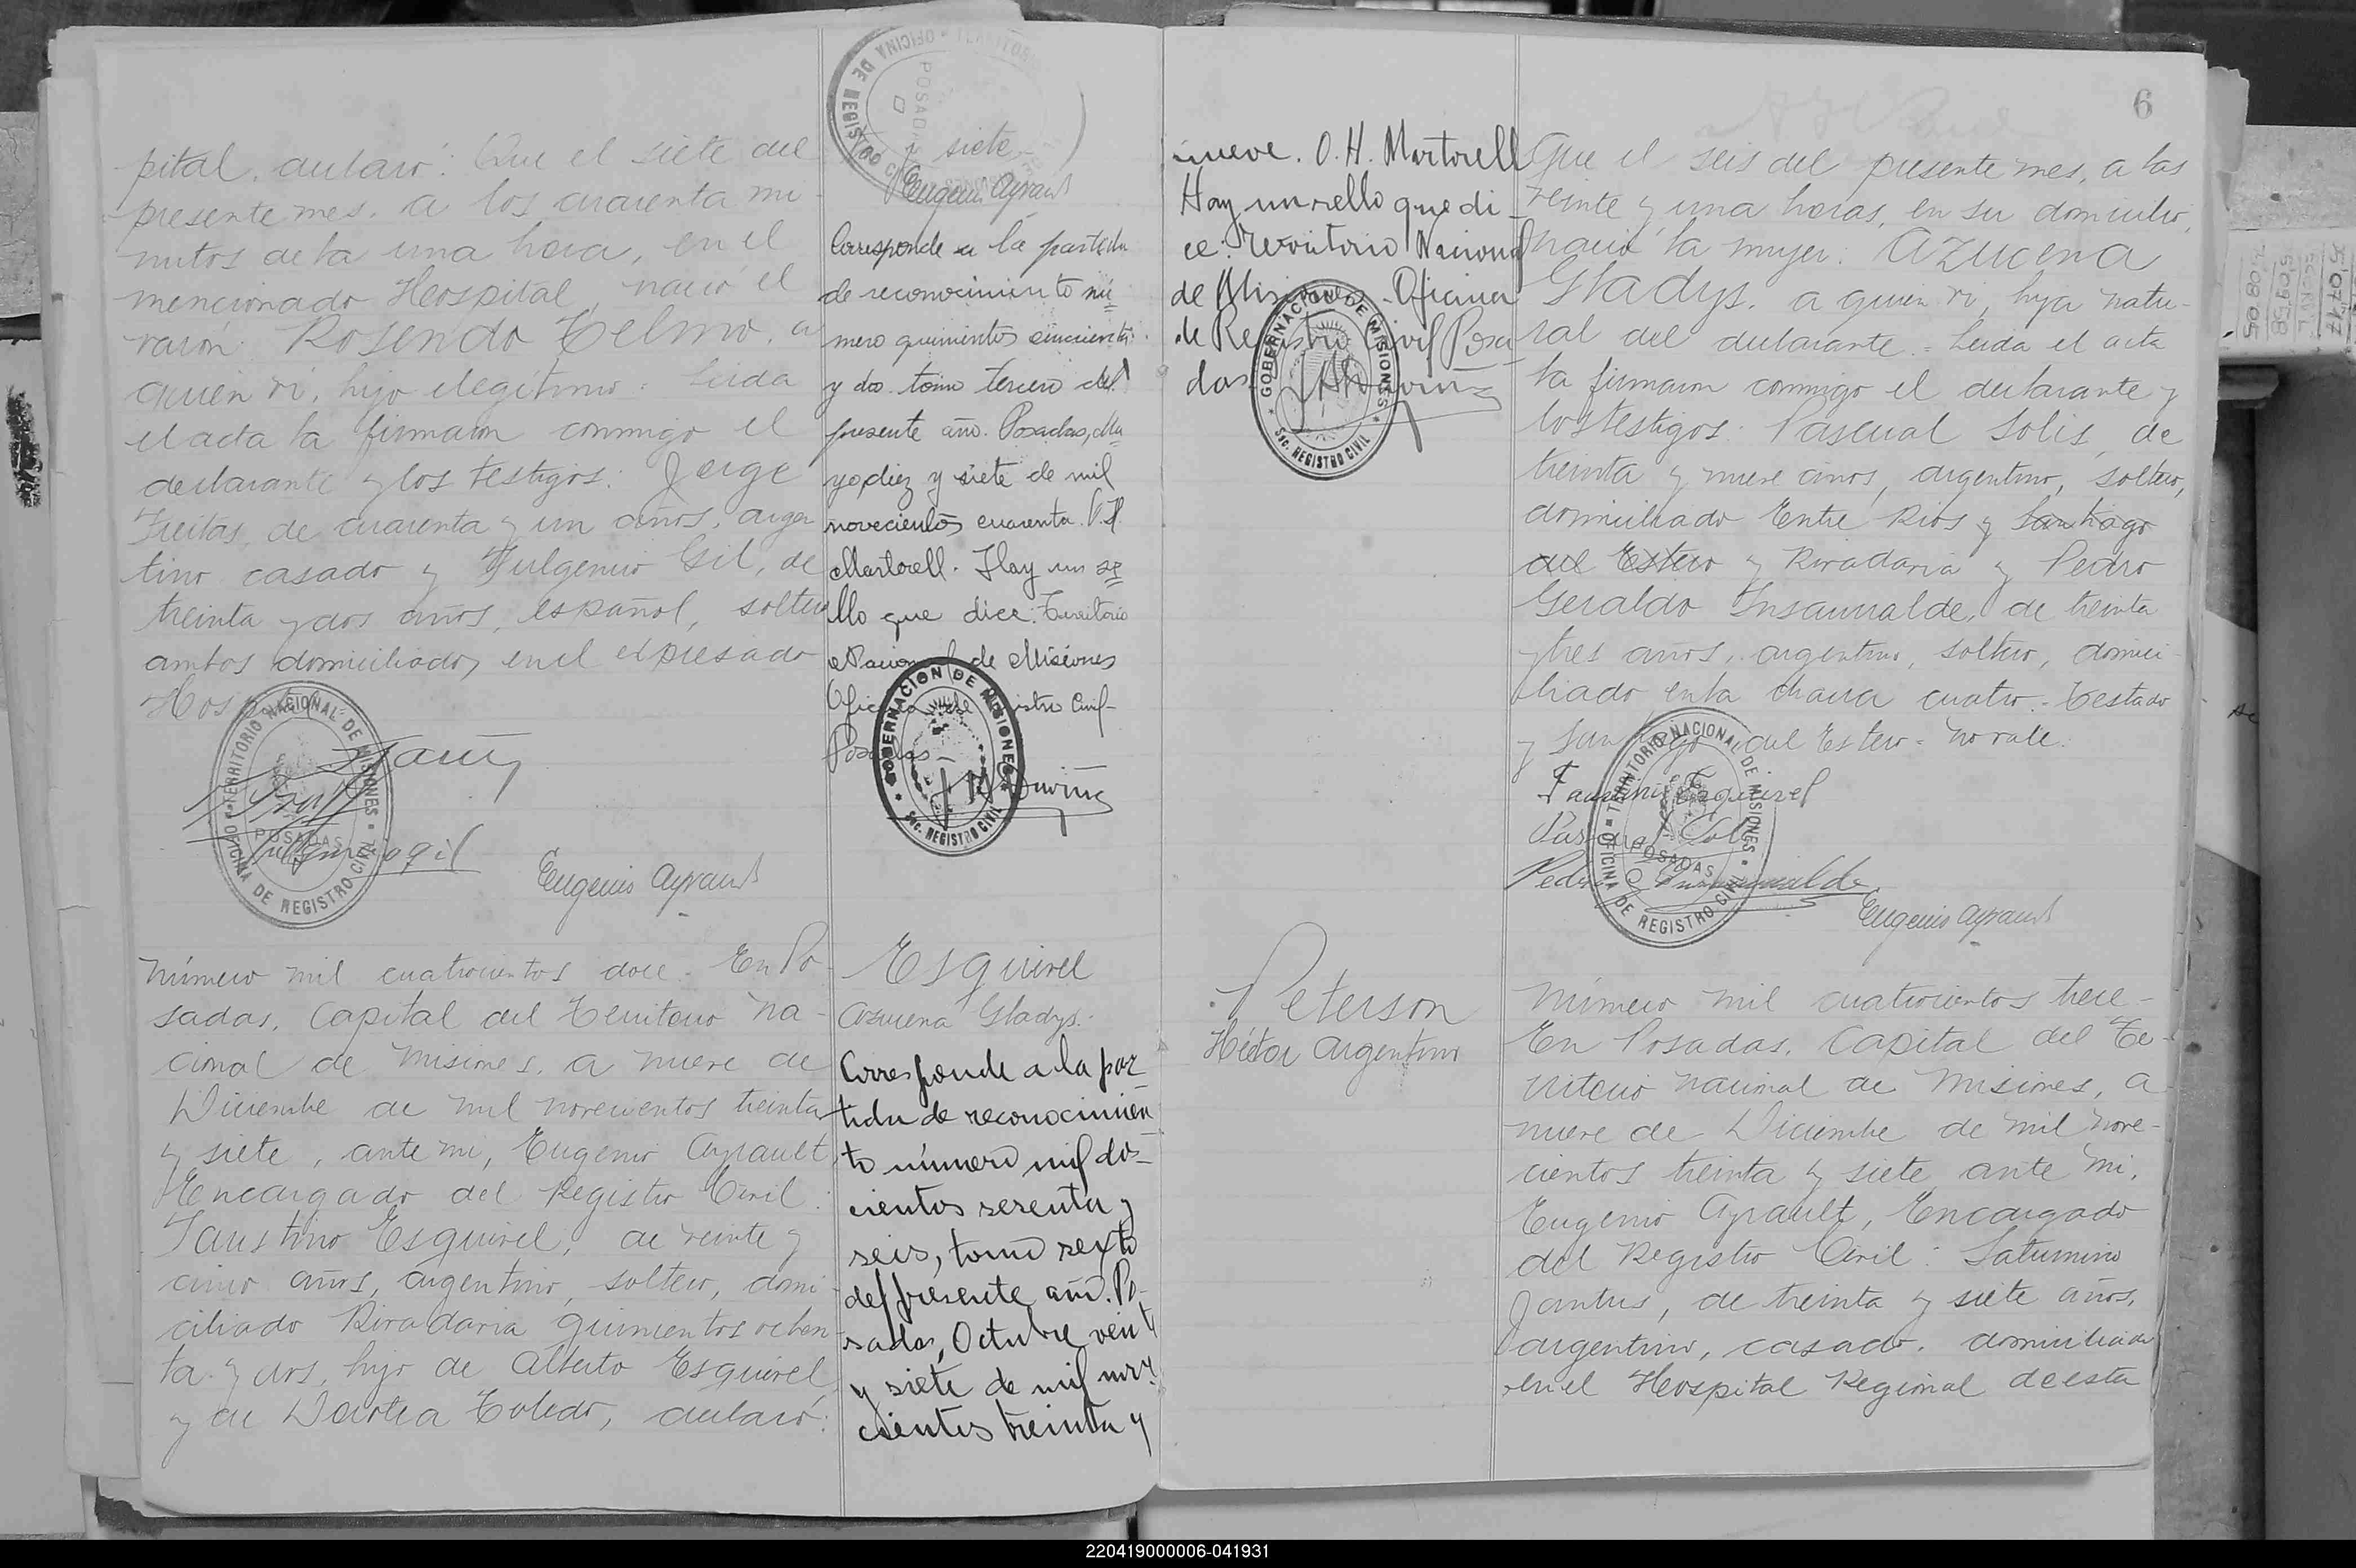 pital, declaró: Que el siete del
presente mes, a los cuarenta mi-
nutos de la una hora, en el
mencionado Hospital, nació el
varón: Rosendo Telmo, a
quien vi, hijo ilegítimo. Leída
el acta la firmaron conmigo el
declarante y los testigos: Jorge
Freitas, de cuarenta y un años, argen
tino casado y Fulgencio Gil, de
treinta y dos años, español, soltero
ambos domiciliados en el expresado
Hospital
TERRITORIO NACIONAL DE MISIONES
POSADAS
OFICINA DE REGISTRO CIVIL
Fulgencio gil
Eugenio Ayrault
Número mil cuatrocientos doce. En Po-
sadas, Capital del Territorio Na-
cional de Misiones, a nueve de
Diciembre de mil novecientos treinta
y siete, ante mi, Eugenio Ayrault
Encargado del Registro Civil:
Faustino Esquivel, de veinte y
cinco años, argentino, soltero, domi-
ciliado Rivadavia quinientos ochen-
ta y dos, hijo de Alberto Esquivel
y de Dorotea Toledo, declaró:
OFICINA DE REGISTRO C
POSADA
y siete
Eugenio Ayrault
Corresponde a la partida
de reconocimiento nú=
mero quinientos cincuenta
y dos tomo tercero del
presente año. Posadas, Ma
yo diez y siete de mil
novecientos cuarenta. O.H.
Martorell. Hay un se
llo que dice: Territorio
Nacional de Misiones
Oficina de Registro Civil-
Posadas-
GOBERNACION DE MISIONES
Sec. REGISTRO CIVIL
Esquivel
Azucena Gladys.
Corresponde a la par-
tida de reconocimien
to número mil dos-
cientos sesenta y
seis, tomo sexto
del presente año. Po-
sadas, Octubre veinti
y siete de mil nove
cientos treinta y
nueve. O. H. Martorell
Hay un sello que di-
ce: Territorio Nacional
de Misiones - Oficina
de Registro Civil Posa
das
GOBERNACION DE MISIONES
Sec. REGISTRO CIVIL
Peterson
Héctor Argentino
6
Que el seis del presente mes, a las
veinte y una horas, en su domicilio,
nació la mujer: Azucena
Gladys, a quien vi, hija natu-
ral del declarante. Leída el acta
la firmaron conmigo el declarante y
los testigos: Pascual Solis, de
treinta y nueve años, argentino, soltero,
domiciliado Entre Rios y Santiago
del Estero y Rivadavia y Pedro
Geraldo Insaurralde, de treinta
y tres años, argentino, soltero, domici-
liado en la chacra cuatro. Testado
y Santiago del Estero = No vale.
Faustino Esquivel
Pascual Solis
Pedro G Insaurralde
TERRITORIO NACIONAL DE MISIONES
POSADAS
OFICINA DE REGISTRO CIVIL
Eugenio Ayrault
Número mil cuatrocientos trece-
En Posadas, Capital del Te-
rritorio Nacional de Misiones, a
nueve de Diciembre de mil nove-
cientos treinta y siete ante mi,
Eugenio Ayrault, Encargado
del Registro Civil: Saturnino
Jantus, de treinta y siete años,
argentino, casado, domiciliado
en el Hospital Regional de esta
220419000006-041931